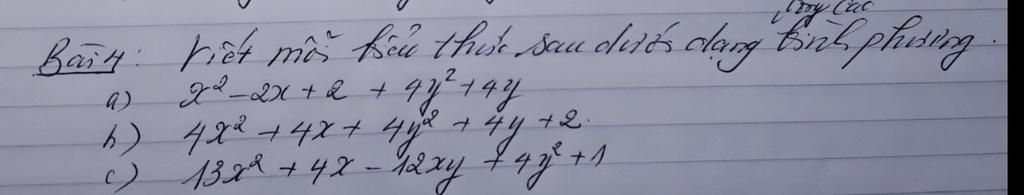 tổng các
Bài 4: Viết mỗi biểu thức sau dưới dạng bình phương.
a) x² - 2x + 2 + 4y² + 4y
b) 4x² + 4x + 4y² + 4y + 2.
c) 13x² + 4x - 12xy + 4y² + 1